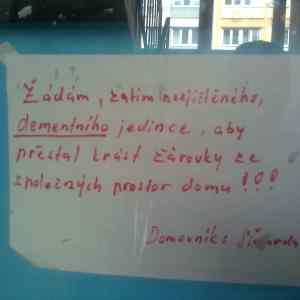 Žádám, zatím nezjištěného,
dementního jedince, aby
přestal krást žárovky ze
společných prostor domu !!!
Domovník